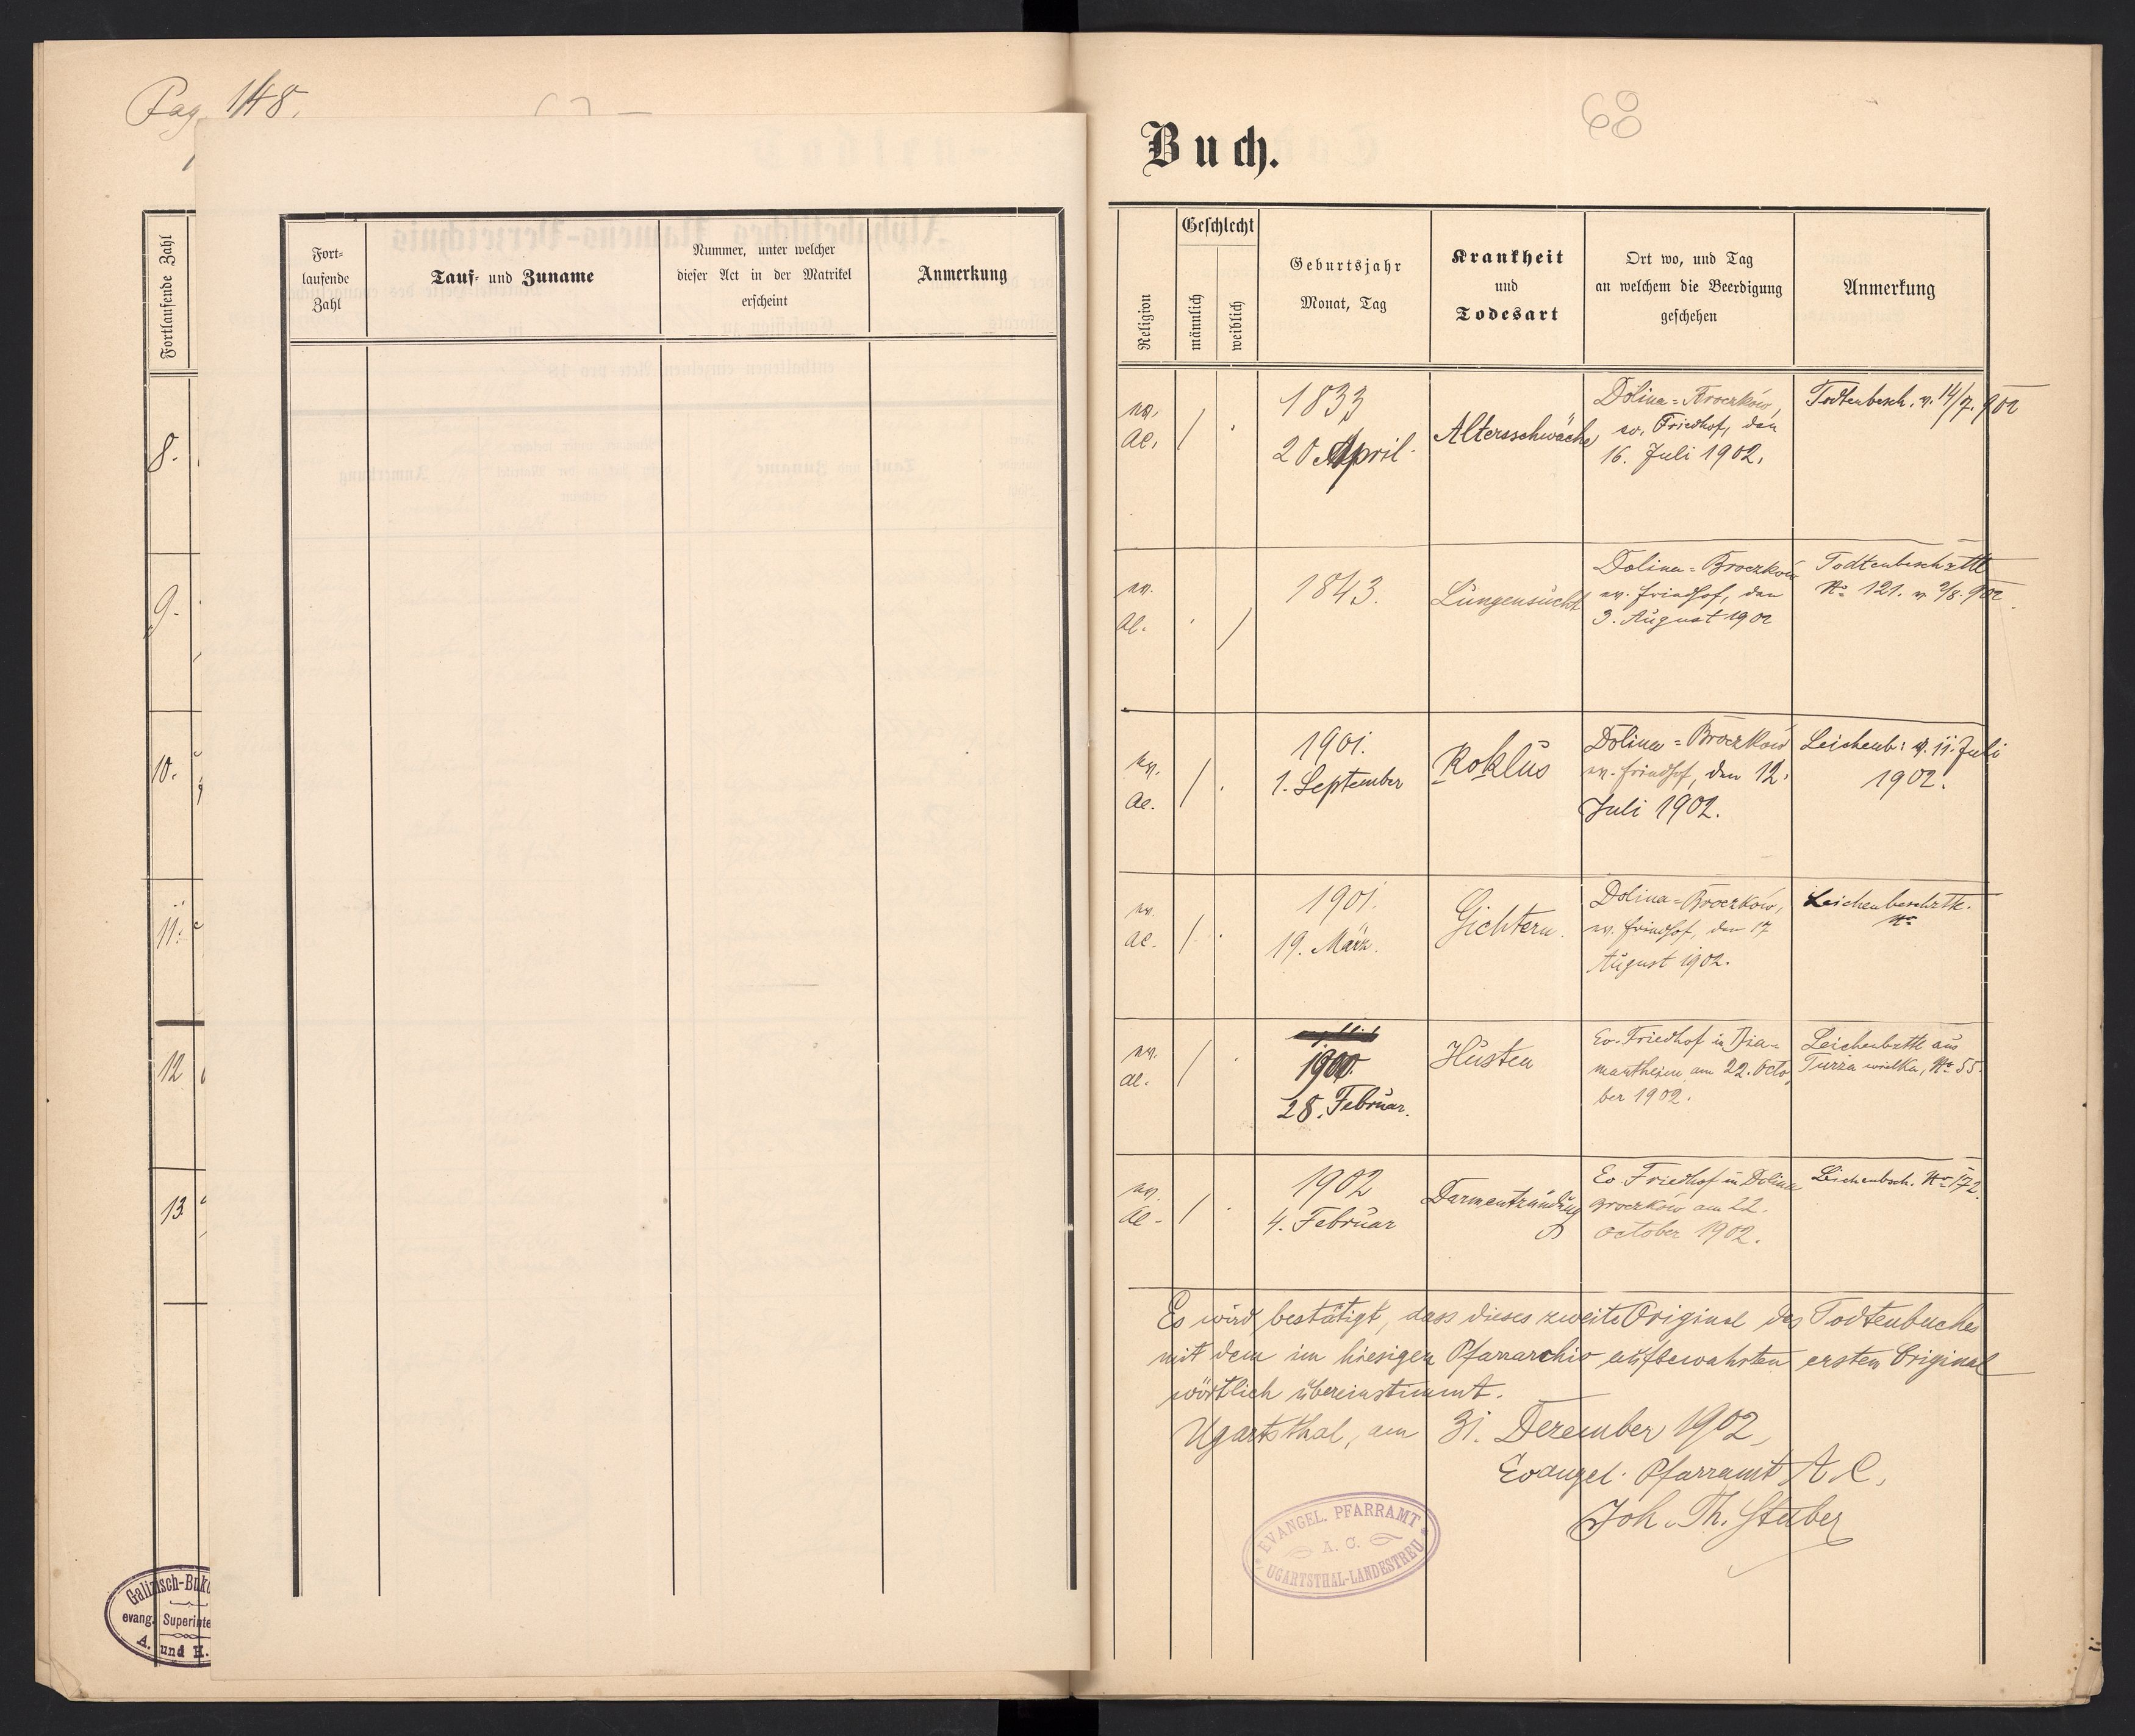 Pag. 148.
Fortlaufende Zahl
8.
9.
10.
11.
12
13
Galizisch-Buk
evang. Superinte
A. und H.
Fort-
laufende
Zahl
Tauf- und Zuname
Nummer, unter welcher
dieser Act in der Matrikel
erscheint
Anmerkung
68
Buch.
Religion
Geschlecht
männlich
weiblich
Geburtsjahr
Monat, Tag
Krankheit
und
Todesart
Ort wo, und Tag
an welchem die Beerdigung
geschehen
Anmerkung
ev.
AC.
/
.
1833
20 April.
Altersschwäche
Dolina=Broczków,
ev. Friedhof, den
16. Juli 1902.
Todtenbesch. v. 14/7. 902
ev.
AC.
.
/
1843.
Lungensucht
Dolina=Broczków
ev. Friedhof, den
3. August 1902
Todtenbeschzttl
No 121. v. 2/8. 902.
ev.
AC.
/
.
1901.
1. September
Koklus
Dolina=Broczków
ev. Friedhof, den 12.
Juli 1902.
Leichenb: v. 11. Juli
1902.
ev.
AC.
/
.
1901.
19. März.
Gichtern.
Dolina=Broczków,
ev. Friedhof, den 17
August 1902.
Leichenbeschztt.
No
ev.
AC.
/
.
1900.
28. Februar.
Husten
Ev. Friedhof in Dia-
mantheim am 22. Octo
ber 1902.
Leichenbzttl aus
Turza wielka, No 55.
ev.
AC.
/
.
1902
4. Februar
Darmentzündung
Ev. Friedhof in Dolina
Broczków am 22.
October 1902.
Leichenbsch. No 172.
Es wird bestätigt, dass dieses zweite Original des Todtenbuches
mit dem im hiesigen Pfarrarchiv aufbewahrten ersten Original
wörtlich übereinstimmt.
Ugartsthal, am 31. Dezember 1902,
Evangel. Pfarramt A C.
Joh. Th. Stuber
EVANGEL. PFARRAMT
A. C.
UGARTSTHAL-LANDESTREU